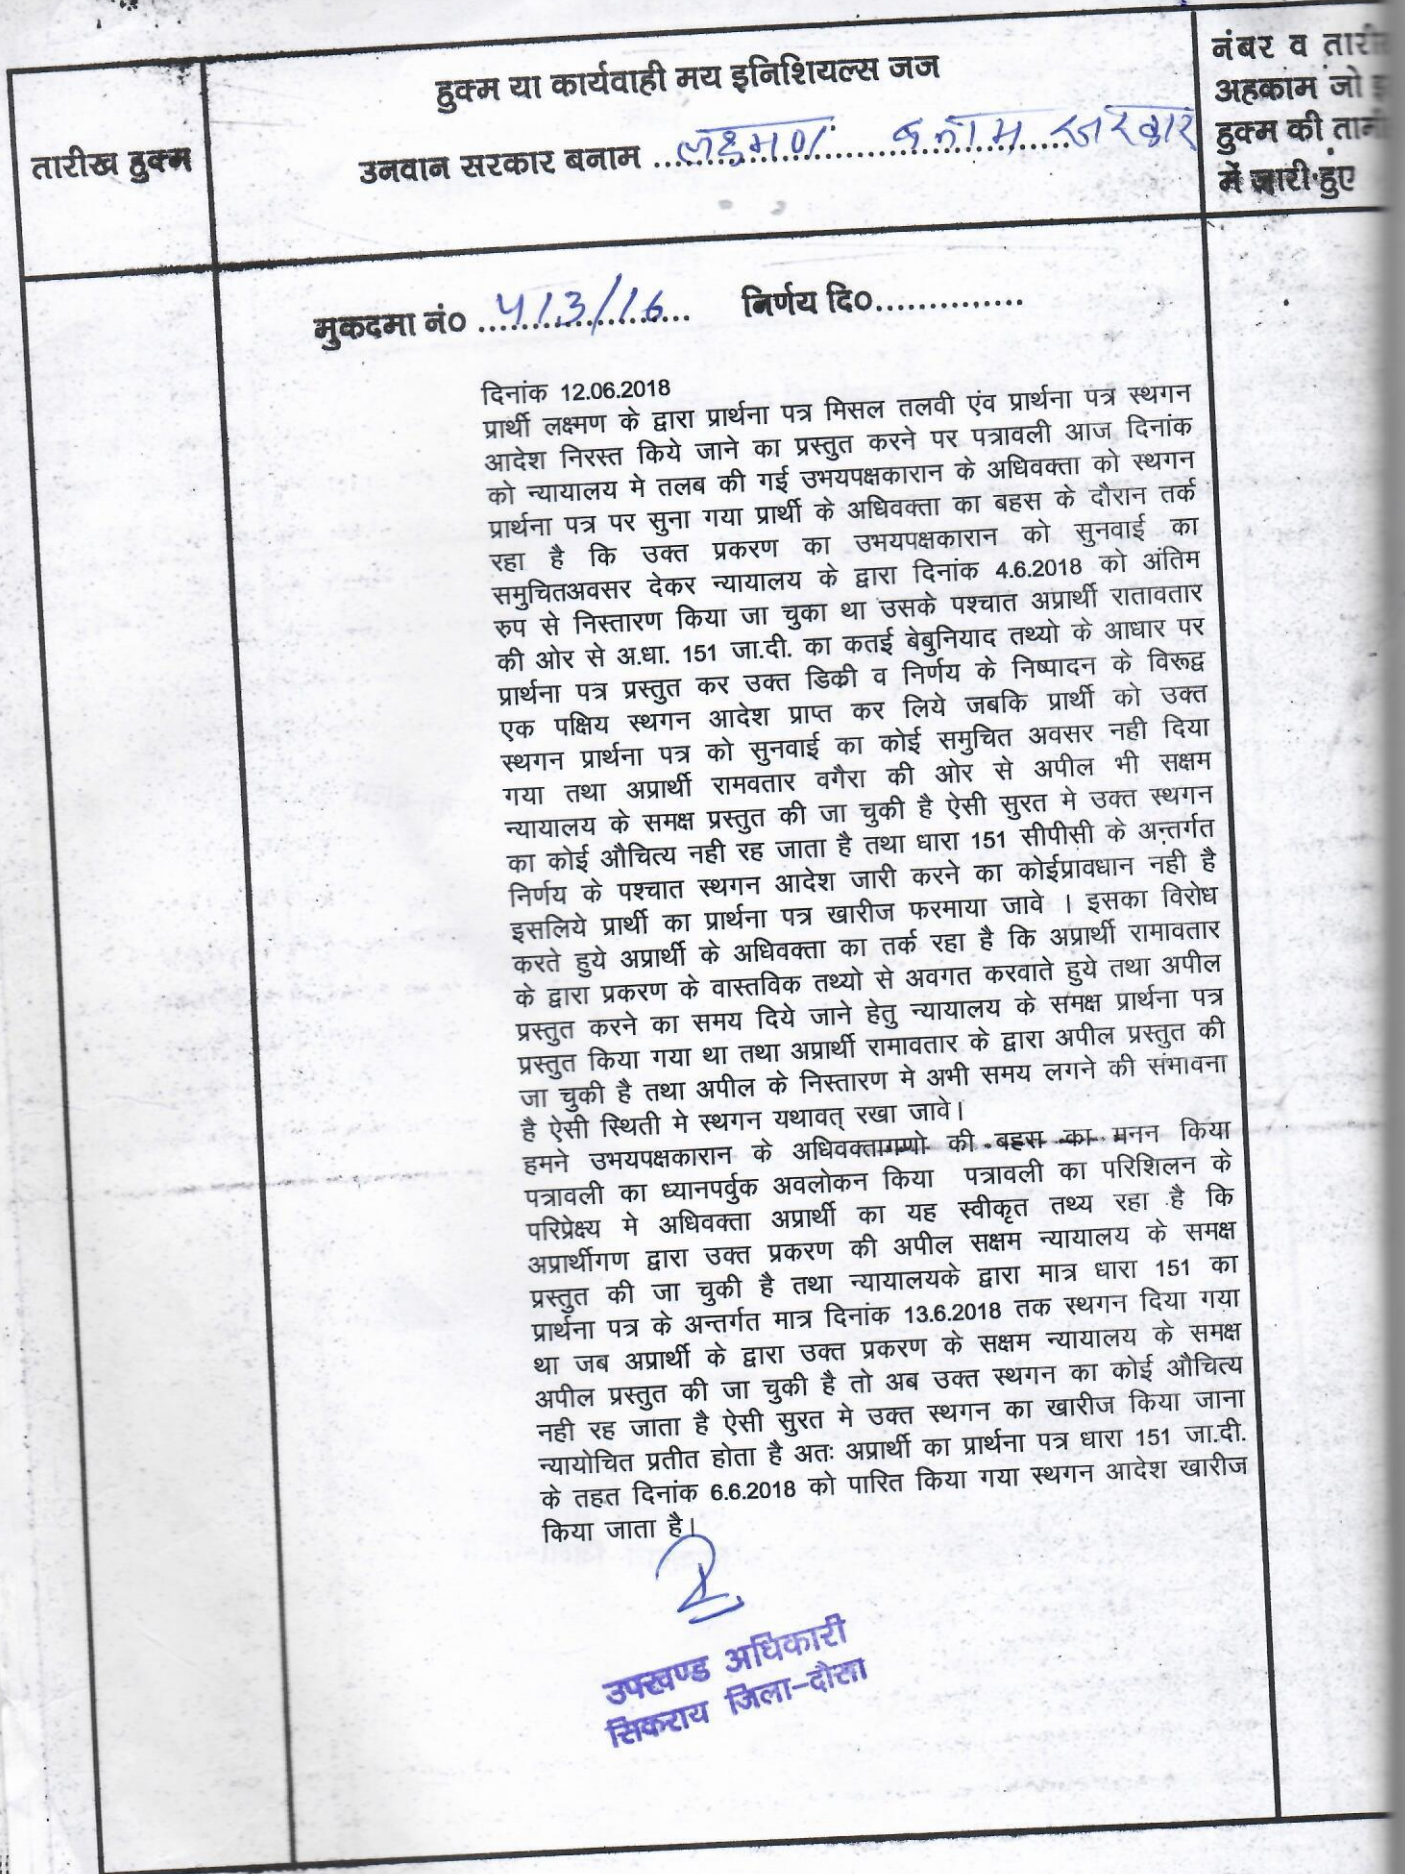 हुक्म या कार्यवाही मय इनिशियल्स जज
नंबर व तारी
अहकाम जो
हुक्म की तामी
में जारी हुए
तारीख हुक्म
उनवान सरकार बनाम लक्ष्मण बनाम सरकार
मुकदमा नं० 413/16 निर्णय दि०..............
दिनांक 12.06.2018
प्रार्थी लक्ष्मण के द्वारा प्रार्थना पत्र मिसल तलवी एंव प्रार्थना पत्र स्थगन
आदेश निरस्त किये जाने का प्रस्तुत करने पर पत्रावली आज दिनांक
को न्यायालय मे तलब की गई उभयपक्षकारान के अधिवक्ता को स्थगन
प्रार्थना पत्र पर सुना गया प्रार्थी के अधिवक्ता का बहस के दौरान तर्क
रहा है कि उक्त प्रकरण का उभयपक्षकारान को सुनवाई का
समुचितअवसर देकर न्यायालय के द्वारा दिनांक 4.6.2018 को अंतिम
रुप से निस्तारण किया जा चुका था उसके पश्चात अप्रार्थी रातावतार
की ओर से अ.धा. 151 जा.दी. का कतई बेबुनियाद तथ्यो के आधार पर
प्रार्थना पत्र प्रस्तुत कर उक्त डिकी व निर्णय के निष्पादन के विरूद्व
एक पक्षिय स्थगन आदेश प्राप्त कर लिये जबकि प्रार्थी को उक्त
स्थगन प्रार्थना पत्र को सुनवाई का कोई समुचित अवसर नही दिया
गया तथा अप्रार्थी रामवतार वगैरा की ओर से अपील भी सक्षम
न्यायालय के समक्ष प्रस्तुत की जा चुकी है ऐसी सुरत मे उक्त स्थगन
का कोई औचित्य नही रह जाता है तथा धारा 151 सीपीसी के अन्तर्गत
निर्णय के पश्चात स्थगन आदेश जारी करने का कोईप्रावधान नही है
इसलिये प्रार्थी का प्रार्थना पत्र खारीज फरमाया जावे । इसका विरोध
करते हुये अप्रार्थी के अधिवक्ता का तर्क रहा है कि अप्रार्थी रामावतार
के द्वारा प्रकरण के वास्तविक तथ्यो से अवगत करवाते हुये तथा अपील
प्रस्तुत करने का समय दिये जाने हेतु न्यायालय के समक्ष प्रार्थना पत्र
प्रस्तुत किया गया था तथा अप्रार्थी रामावतार के द्वारा अपील प्रस्तुत की
जा चुकी है तथा अपील के निस्तारण मे अभी समय लगने की संभावना
है ऐसी स्थिती मे स्थगन यथावत् रखा जावे।
हमने उभयपक्षकारान के अधिवक्तागणो की बहस का मनन किया
पत्रावली का ध्यानपर्वुक अवलोकन किया पत्रावली का परिशिलन के
परिप्रेक्ष्य मे अधिवक्ता अप्रार्थी का यह स्वीकृत तथ्य रहा है कि
अप्रार्थीगण द्वारा उक्त प्रकरण की अपील सक्षम न्यायालय के समक्ष
प्रस्तुत की जा चुकी है तथा न्यायालयके द्वारा मात्र धारा 151 का
प्रार्थना पत्र के अन्तर्गत मात्र दिनांक 13.6.2018 तक स्थगन दिया गया
था जब अप्रार्थी के द्वारा उक्त प्रकरण के सक्षम न्यायालय के समक्ष
अपील प्रस्तुत की जा चुकी है तो अब उक्त स्थगन का कोई औचित्य
नही रह जाता है ऐसी सुरत मे उक्त स्थगन का खारीज किया जाना
न्यायोचित प्रतीत होता है अतः अप्रार्थी का प्रार्थना पत्र धारा 151 जा.दी.
के तहत दिनांक 6.6.2018 को पारित किया गया स्थगन आदेश खारीज
किया जाता है।
उपखण्ड अधिकारी
सिकराय जिला-दौसा